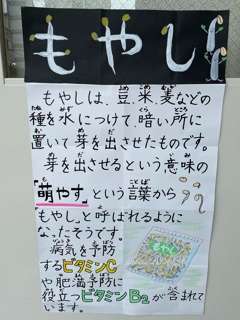 もやし
もやしは、豆、米、麦などの
種を水につけて、暗い所に
置いて芽を出させたものです。
芽を出させるという意味の
「萌やす」という言葉から
「もやし」と呼ばれるように
なったそうです。
病気を予防
するビタミンC
や肥満予防に
役立つビタミンB2が含まれて
います。